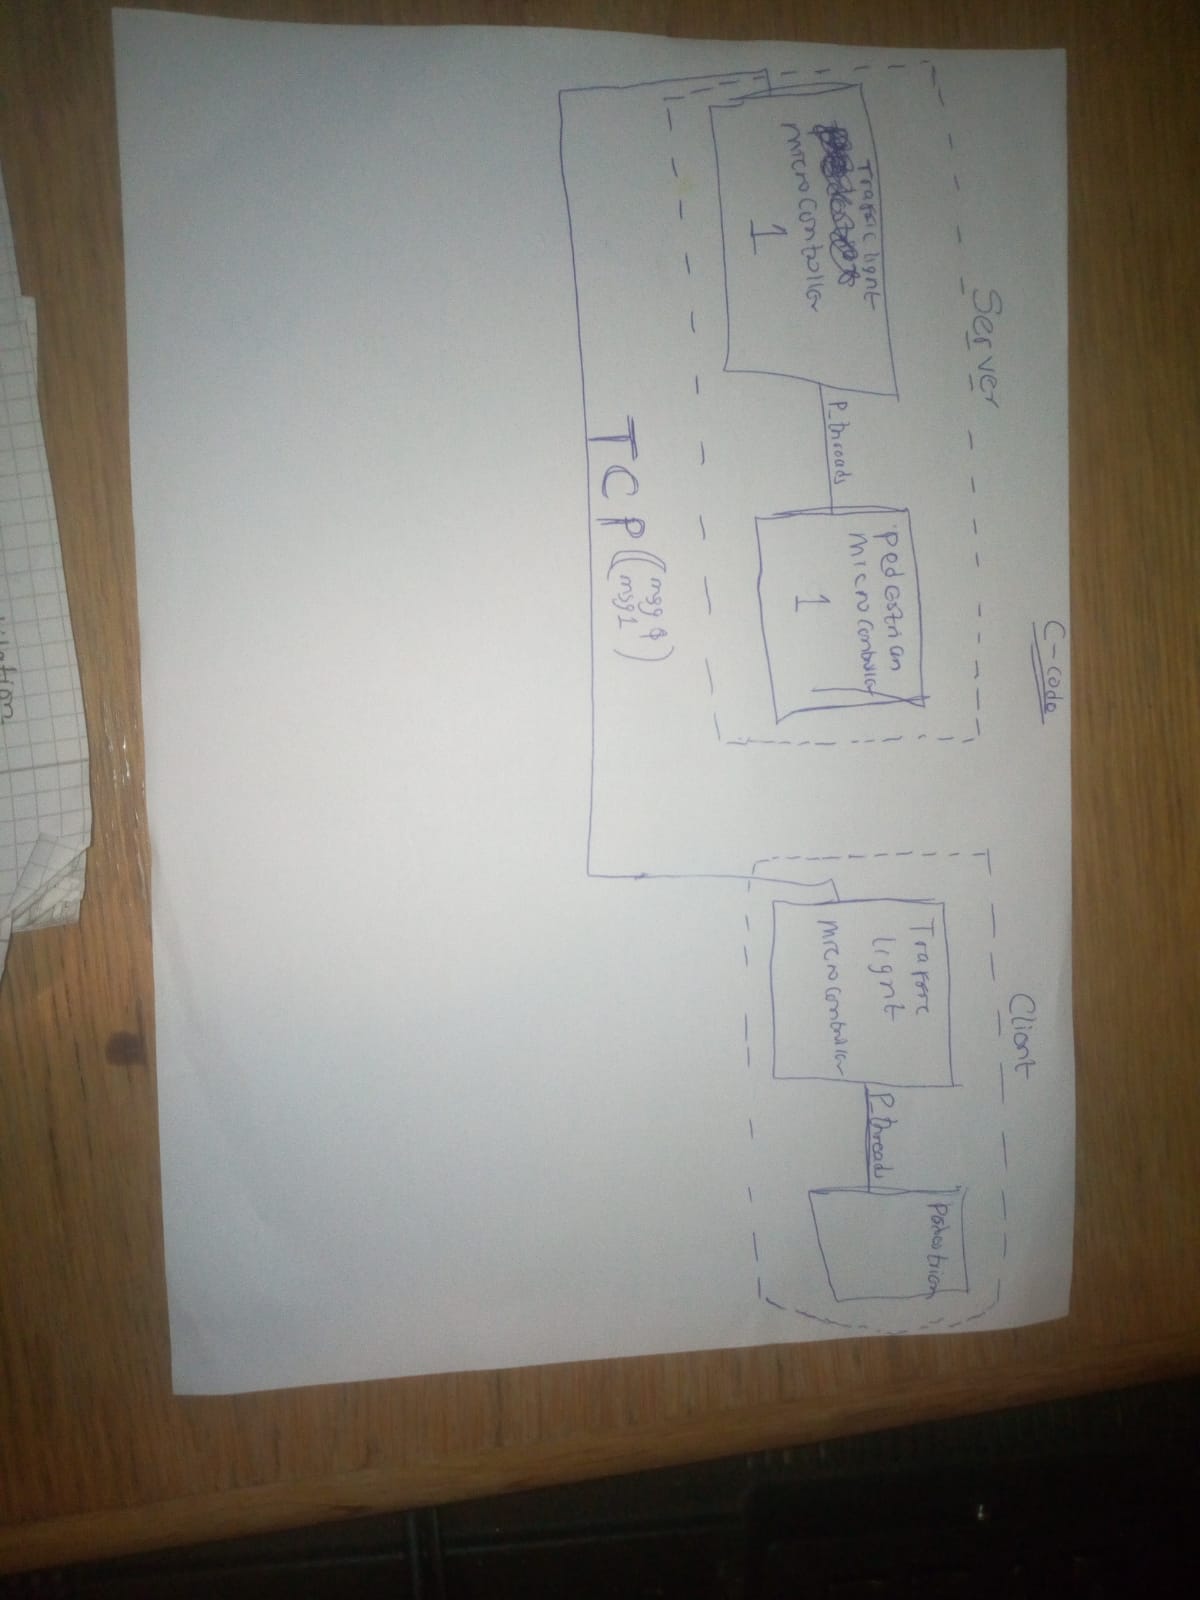 C-code
Server
Traffic light
microcontroller
1
P_threads
pedestrian
microcontroller
1
Client
Traffic
light
microcontroller
P_threads
Pedestrian
TCP (msg 0
msg 1)